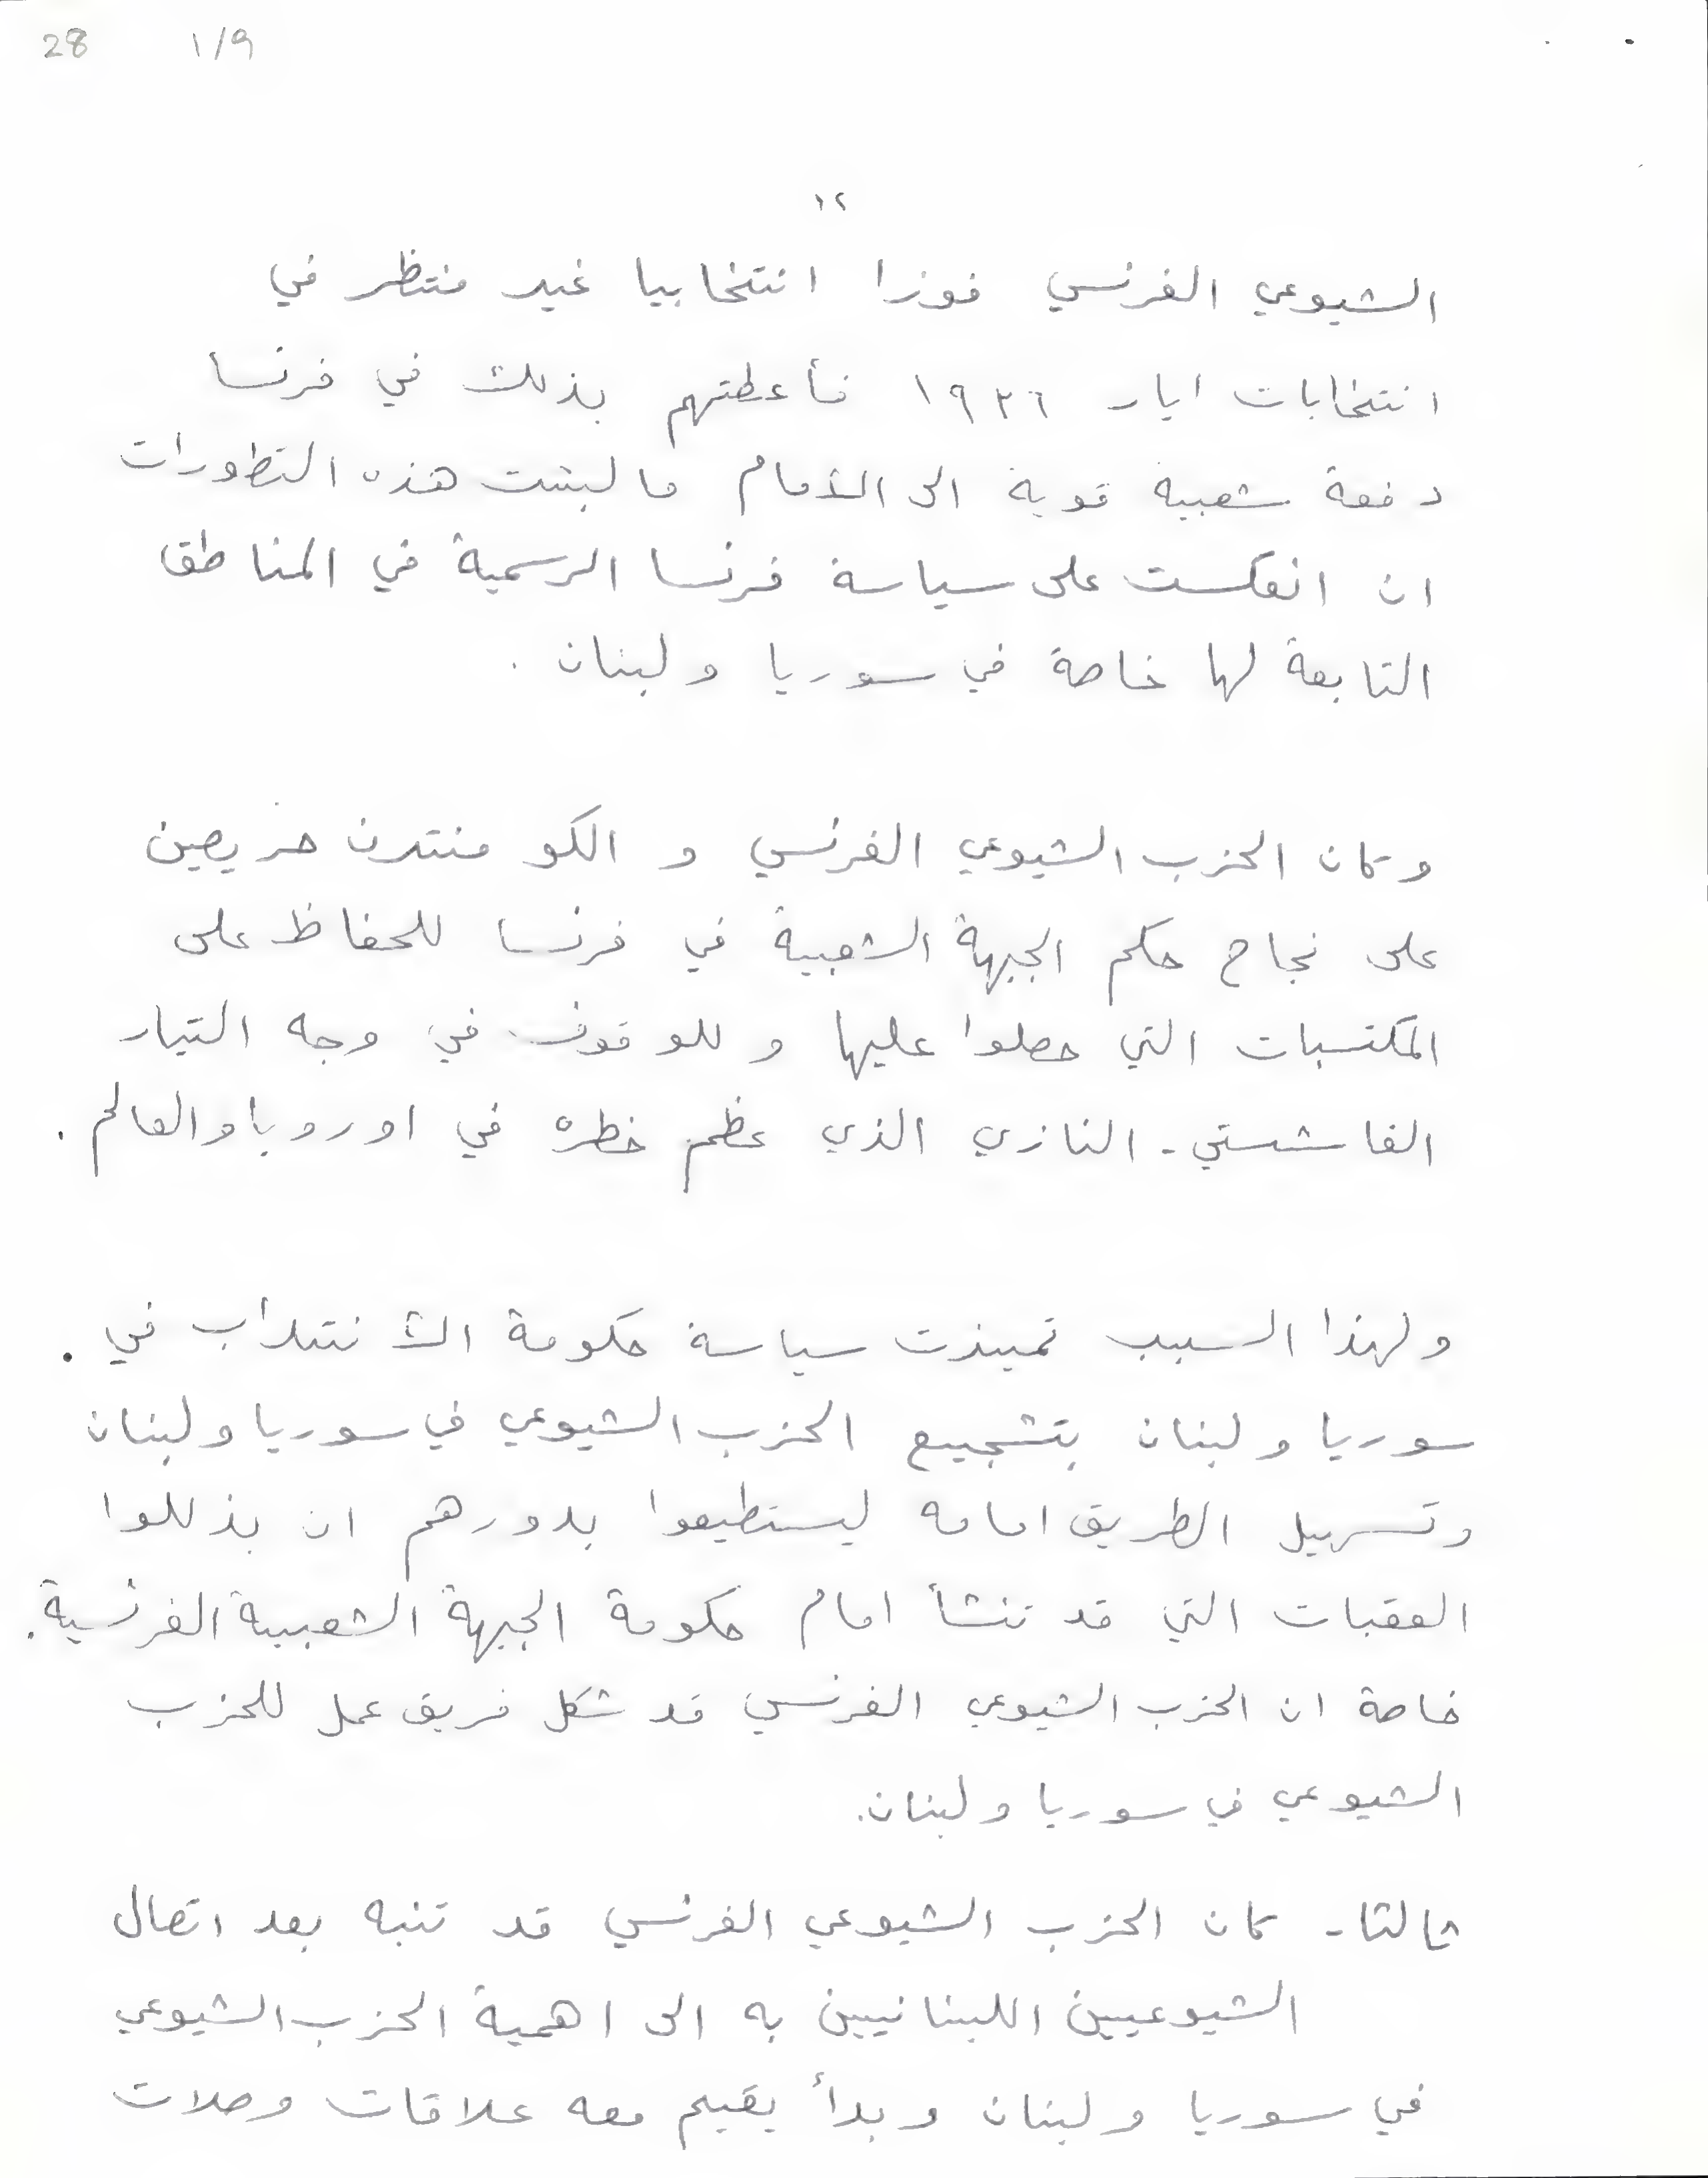 28 1/9
١٢
الشيوعي الفرنسي فوزا انتخابيا غير منتظر في
انتخابات ايار ١٩٣٦ فأعطتهم بذلك في فرنسا
دفعة شعبية قوية الى الأمام ما لبثت هذه التطورات
ان انعكست على سياسة فرنسا الرسمية في المناطق
التابعة لها خاصة في سوريا ولبنان .
وكان الحزب الشيوعي الفرنسي و الكومنترن حريصين
على نجاح حكم الجبهة الشعبية في فرنسا للحفاظ على
المكتسبات التي حصلوا عليها و للوقوف في وجه التيار
الفاشستي - النازي الذي عظم خطره في اوروبا والعالم .
ولهذا السبب تميزت سياسة حكومة الانتداب في
سوريا ولبنان بتشجيع الحزب الشيوعي في سوريا ولبنان
وتسهيل الطريق امامه ليستطيعوا بدورهم ان يذللوا
العقبات التي قد تنشأ امام حكومة الجبهة الشعبية الفرنسية .
خاصة ان الحزب الشيوعي الفرنسي قد شكل فريق عمل للحزب
الشيوعي في سوريا ولبنان .
ثالثا - كان الحزب الشيوعي الفرنسي قد تنبه بعد اتصال
الشيوعيين اللبنانيين به الى اهمية الحزب الشيوعي
في سوريا ولبنان وبدأ يقيم معه علاقات وصلات